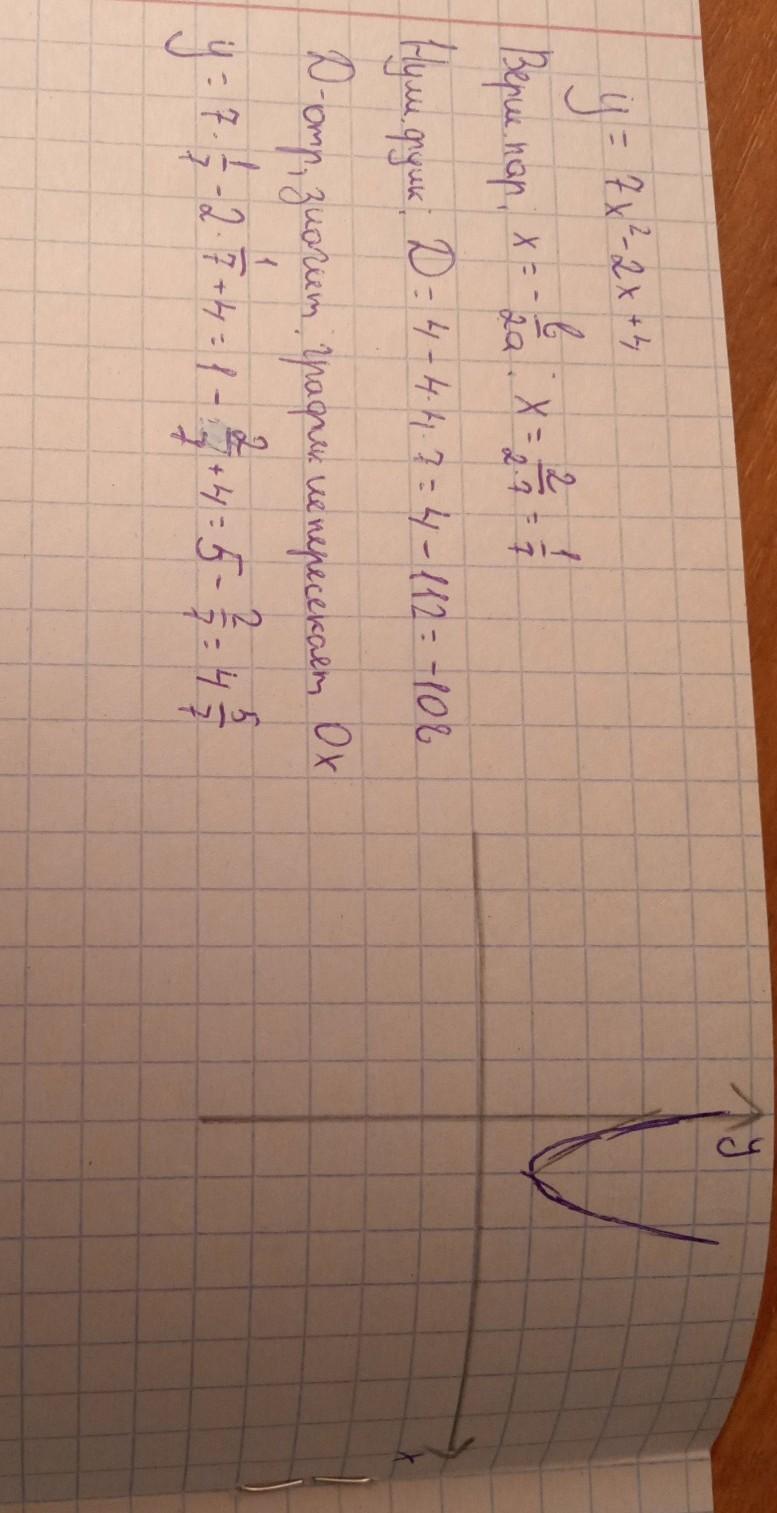 y = 7x² - 2x + 4
Верш. пар. x = - b/2a ; x = 2/2·7 = 1/7
Нули функ. D = 4 - 4·4·7 = 4 - 112 = -108
D-отр, значит график не пересекает Ox
y = 7 · 1/7 - 2 · 1/7 + 4 = 1 - 2/7 + 4 = 5 - 2/7 = 4 5/7
y
x